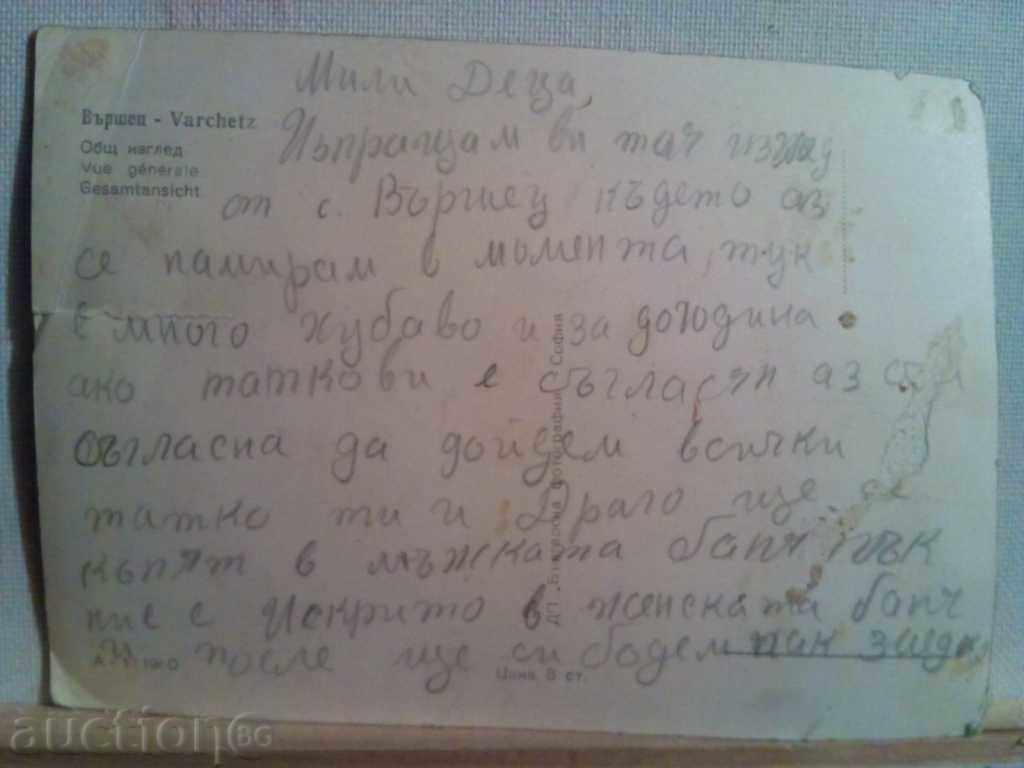 Мили Деца,
Вършец - Varchetz
Общ изглед
Vue générale
Gesamtansicht
Изпращам ви тач изглед
от с. Вършец където аз
се памирам в момента, тук
е много хубаво и за догодина
ако таткови е съгласян аз съм
съгласна да дойдем всички
татко ти и Драго ще се
къпят в мъжката бапч пък
ние с Искрито в женската бапч
и после ще си бодем пак заедно
ДП „Българска фотография“ София
Цена 8 ст.
auctionBG